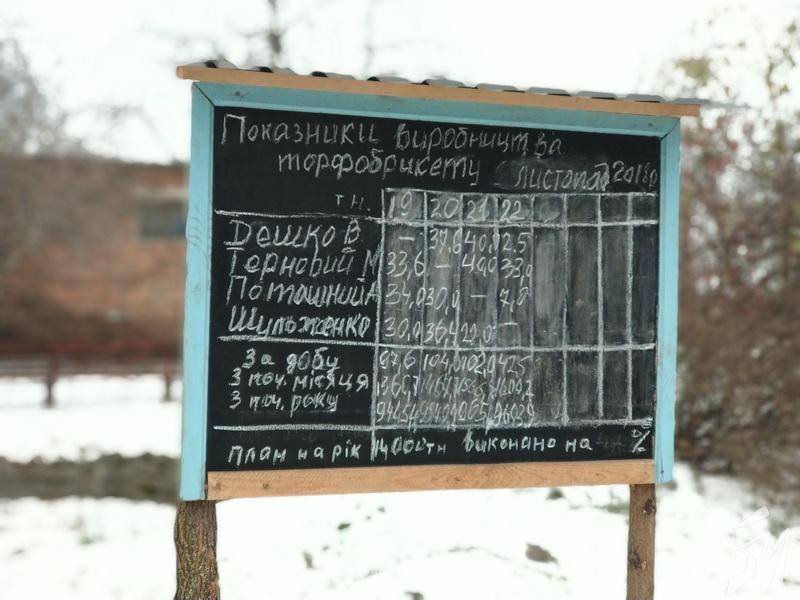 Показники виробництва
торфобрикету листопад 2018р
тн. 19 20 21 22
Дешко В – 37,6 40,0 2,5
Терновий М 33,6 – 40,0 33,0
Поташний А 34,0 30,0 – 7,0
Шульженко 30,0 36,4 22,0 –
За добу 97,6 104,0 102,0 42,5
З поч. місяця
З поч. року
План на рік 14000тн виконано на %